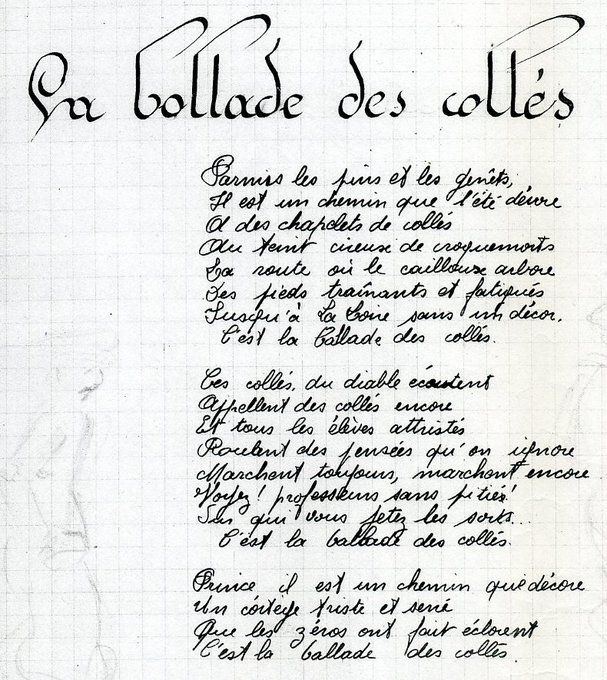 La ballade des collés
Parmis les pins et les genêts,
Il est un chemin que l'été dévore
A des chapelets de collés
Au teint cireux de croquemorts
La route où le cailloux arbore
Des pieds traînants et fatigués
Jusqu'à La Loire sans un décor.
C'est la ballade des collés.
Ces collés, du diable écoutent
Appellent des collés encore
Et tous les élèves attristés
Roulent des pensées qu'on ignore
Marchent toujours, marchent encore
Voyez! professeurs sans pitiés!
Sur qui vous jetez les sorts...
C'est la ballade des collés.
Prince il est un chemin que décore
Un córtège triste et serié
Que les zéros ont fait éclorent
C'est la ballade des collés.